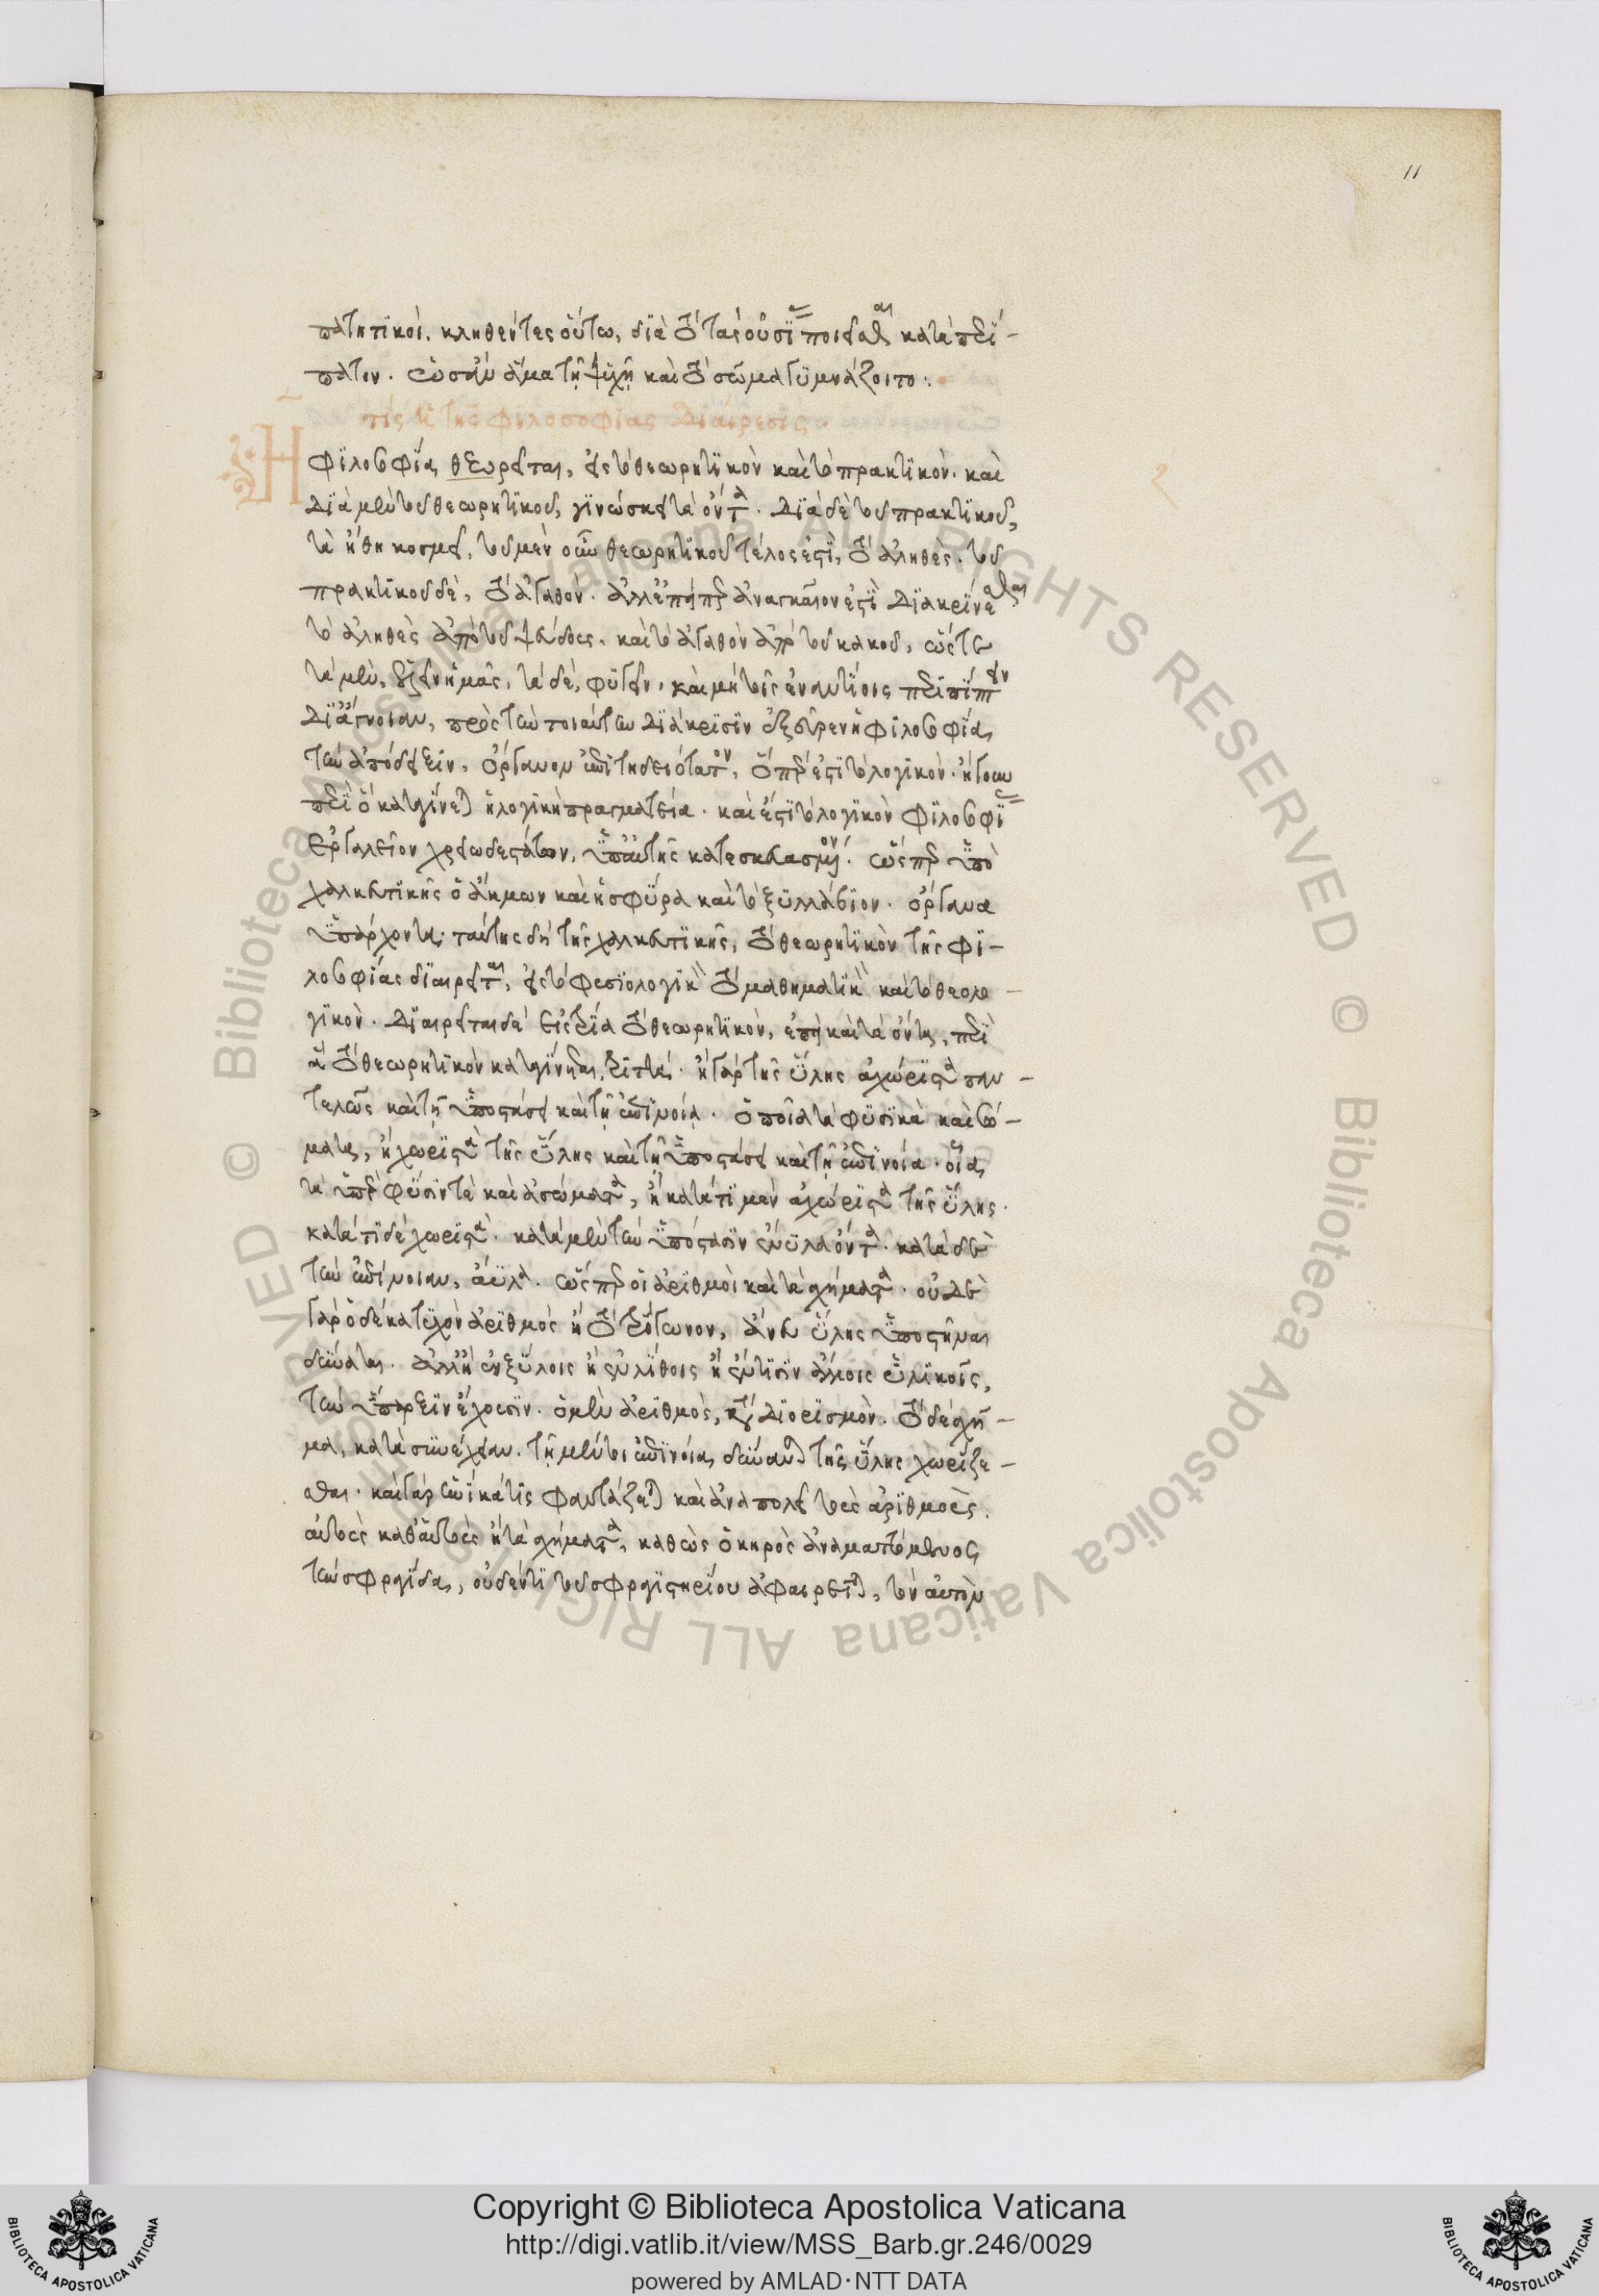 11
πατητικοί. κληθέντες οὕτω, διὰ τὸ τὰς οὐσίας ποιεῖσθαι κατὰ περί-
πατον. ἅμα τῇ ψυχῇ καὶ τὸ σῶμα γυμνάζοιτο:.
τίς ἡ τῆς φιλοσοφίας διαίρεσις.
Η φιλοσοφία εἰς τὸ θεωρητικὸν καὶ τὸ πρακτικόν. καὶ
διὰ μὲν τοῦ θεωρητικοῦ, γινώσκει τὰ ὄντα. διὰ δὲ τοῦ πρακτικοῦ,
τὰ ἤθη κοσμεῖ. τοῦ μὲν οὖν θεωρητικοῦ τέλος ἐστὶ, τὸ ἀληθές. τοῦ
πρακτικοῦ δὲ, τὸ ἀγαθόν. ἀλλ' ἐπείπερ ἀναγκαῖον ἐστὶ διακρίνεσθαι
τὸ ἀληθὲς ἀπὸ τοῦ ψεύδους. καὶ τὸ ἀγαθὸν ἀπὸ τοῦ κακοῦ, ὥστε
τὰ μὲν, ἡμᾶς, τὰ δὲ, φυγεῖν. καὶ μὴ τοῖς ἐναντίοις περιπίπτειν
δι' ἄγνοιαν, πρὸς τὴν τοιαύτην διάκρισιν ἐξεῦρεν ἡ φιλοσοφία,
τὴν ἀπόδειξιν, ὄργανον ἐπιτηδειότατον, ὅπερ ἐστὶ τὸ λογικόν. ἤγουν
περὶ ὃ καταγίνεται ἡ λογικὴ πραγματεία. καὶ ἔστι τὸ λογικὸν φιλοσοφίας
ἐργαλεῖον χρειωδέστατον, ὑπ' αὐτῆς κατεσκευασμένον. ὥσπερ ὑπὸ
χαλκευτικῆς ὁ ἄκμων καὶ ἡ σφύρα καὶ τὸ ξυλλάβιον. ὄργανα
ὑπάρχοντα ταύτης δὴ τῆς χαλκευτικῆς, τὸ θεωρητικὸν τῆς φι-
λοσοφίας διαιρεῖται, εἰς τὸ φυσιολογικὸν τὸ μαθηματικὸν καὶ τὸ θεολο-
γικόν. διαιρεῖται δὲ εἰς τρία τὸ θεωρητικὸν, ἐπεὶ καὶ τὰ ὄντα, περὶ
ἃ τὸ θεωρητικὸν καταγίνεται, τριττά. ἢ γὰρ τῆς ὕλης ἀχώριστα παν-
τελῶς καὶ τῇ ὑποστάσει καὶ τῇ ἐπινοίᾳ. ὁποῖα τὰ φυσικὰ καὶ σώ-
ματα, ἢ χωριστὰ τῆς ὕλης καὶ τῇ ὑποστάσει καὶ τῇ ἐπινοίᾳ. οἷα,
τὰ ὑπὲρ φύσιν τὲ καὶ ἀσώματα, ἢ κατά τι μὲν ἀχώριστα τῆς ὕλης.
κατά τι δὲ χωριστά. κατὰ μὲν τὴν ὑπόστασιν ἔνυλα ὄντα. κατὰ δὲ
τὴν ἐπίνοιαν, ἄυλα. ὥσπερ οἱ ἀριθμοὶ καὶ τὰ σχήματα. οὐδὲ
γὰρ ὁ δέκα τυχὸν ἀριθμὸς ἢ τὸ τρίγωνον, ἄνευ ὕλης ὑποστῆναι
δύναται. ἀλλ' ἢ ἐν ξύλοις ἢ ἐν λίθοις ἢ ἐν τισὶν ἄλλοις ὑλικοῖς,
τὴν ὕπαρξιν ἔχουσιν. ὁ μὲν ἀριθμὸς, κατὰ διορισμόν. τὸ δὲ σχῆ-
μα, κατὰ συνέχειαν. τῇ μέντοι ἐπινοίᾳ, δύναται τῆς ὕλης χωρίζε-
σθαι. καὶ γὰρ ἡνίκα τίς φαντάζεται καὶ ἀναπολεῖ τοὺς ἀριθμοὺς.
αὐτοὺς καθ' αὑτοὺς ἢ τὰ σχήματα, καθὼς ὁ κηρὸς ἀναματτόμενος
τὴν σφραγίδα, οὐδέν τι τοῦ σφραγιστηρίου ἀφαιρεῖται, τὸν αὐτὸν
Copyright © Biblioteca Apostolica Vaticana
http://digi.vatlib.it/view/MSS_Barb.gr.246/0029
powered by AMLAD·NTT DATA